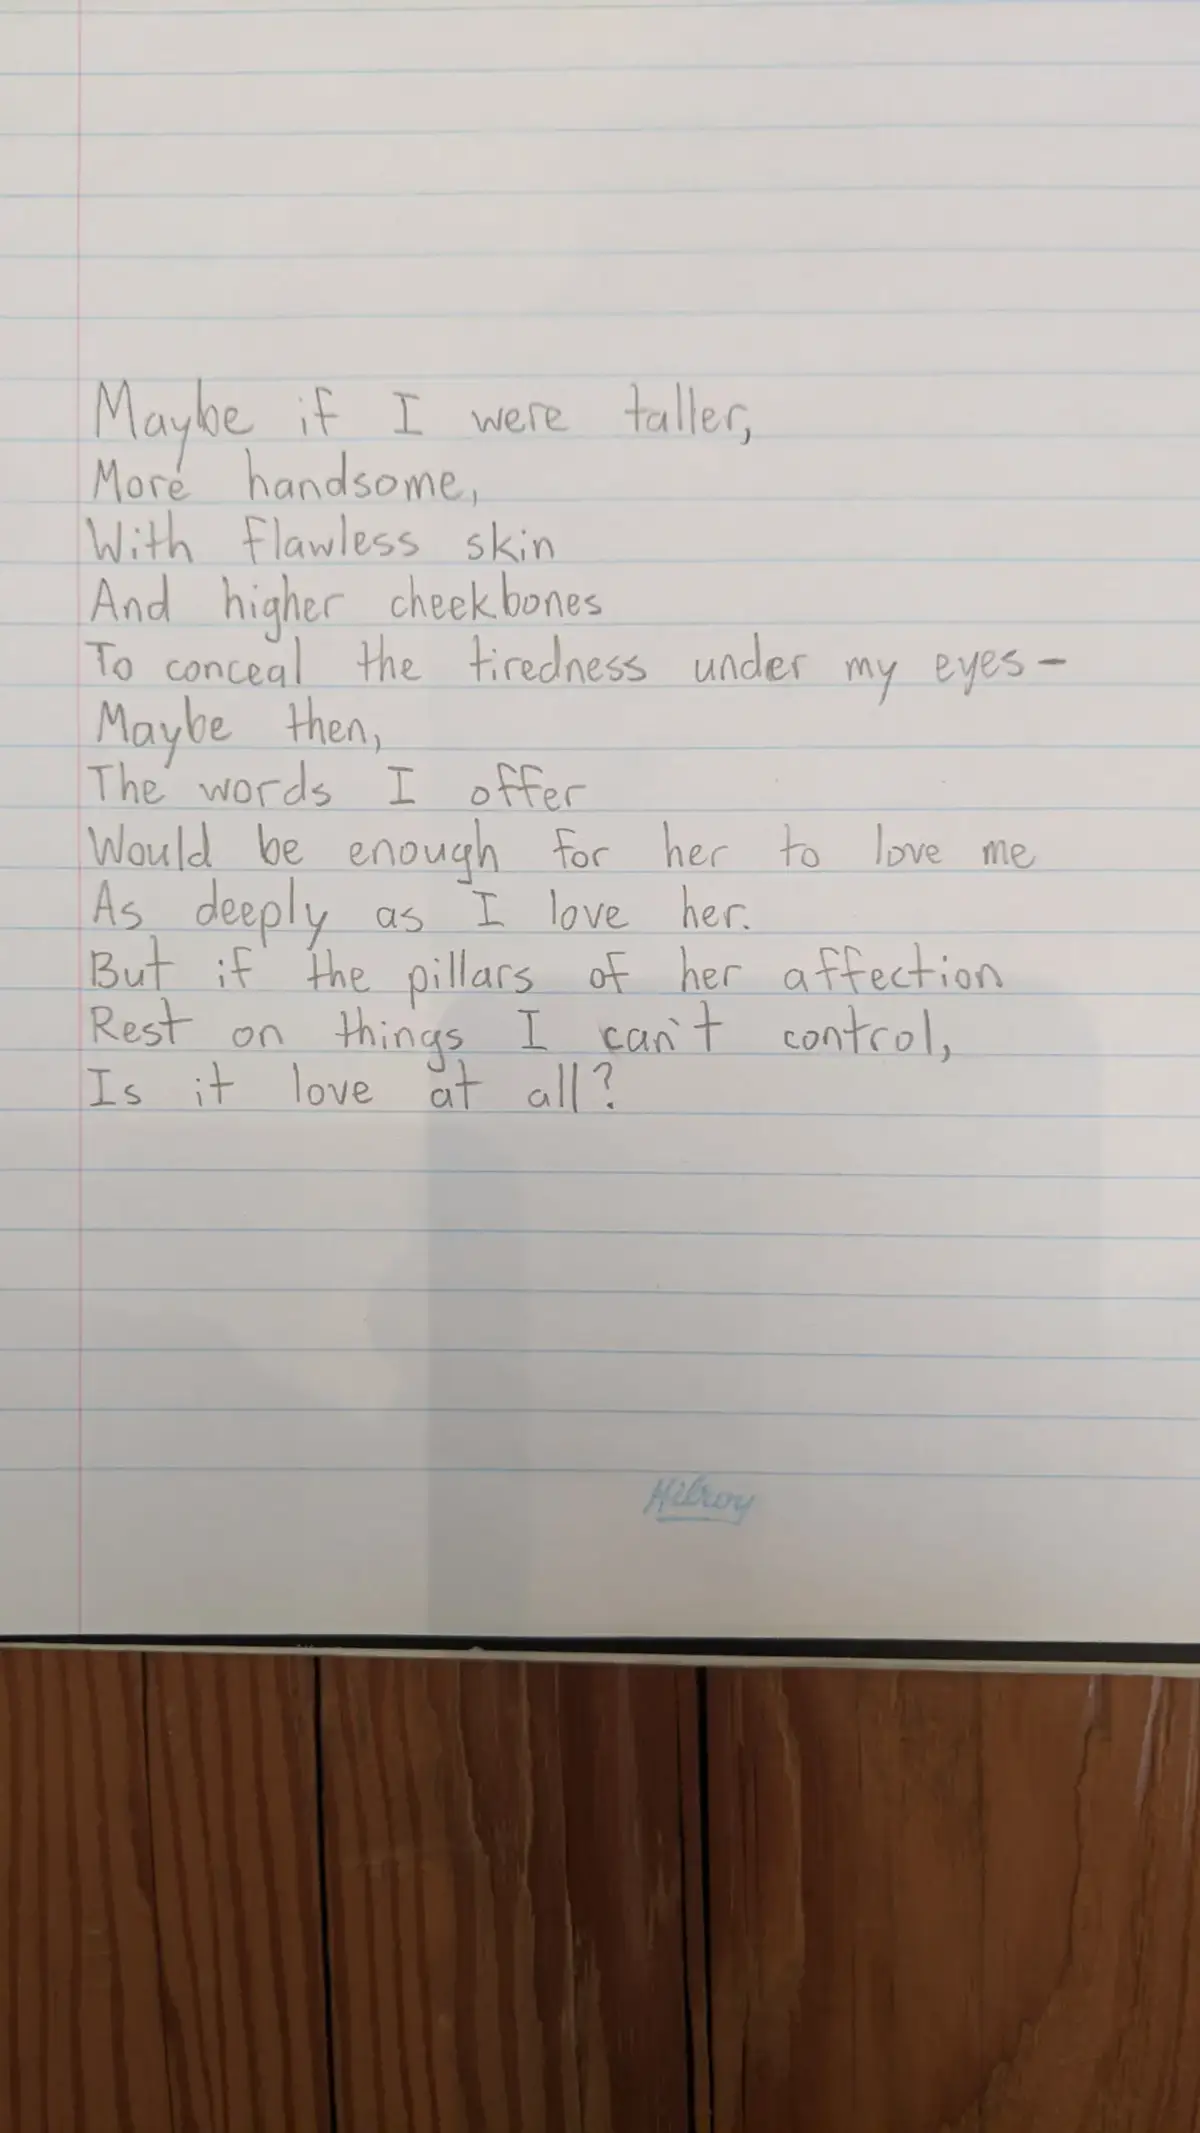 Maybe if I were taller,
More handsome,
With flawless skin
And higher cheekbones
To conceal the tiredness under my eyes-
Maybe then,
The words I offer
Would be enough for her to love me
As deeply as I love her.
But if the pillars of her affection
Rest on things I can't control,
Is it love at all?
Hilroy